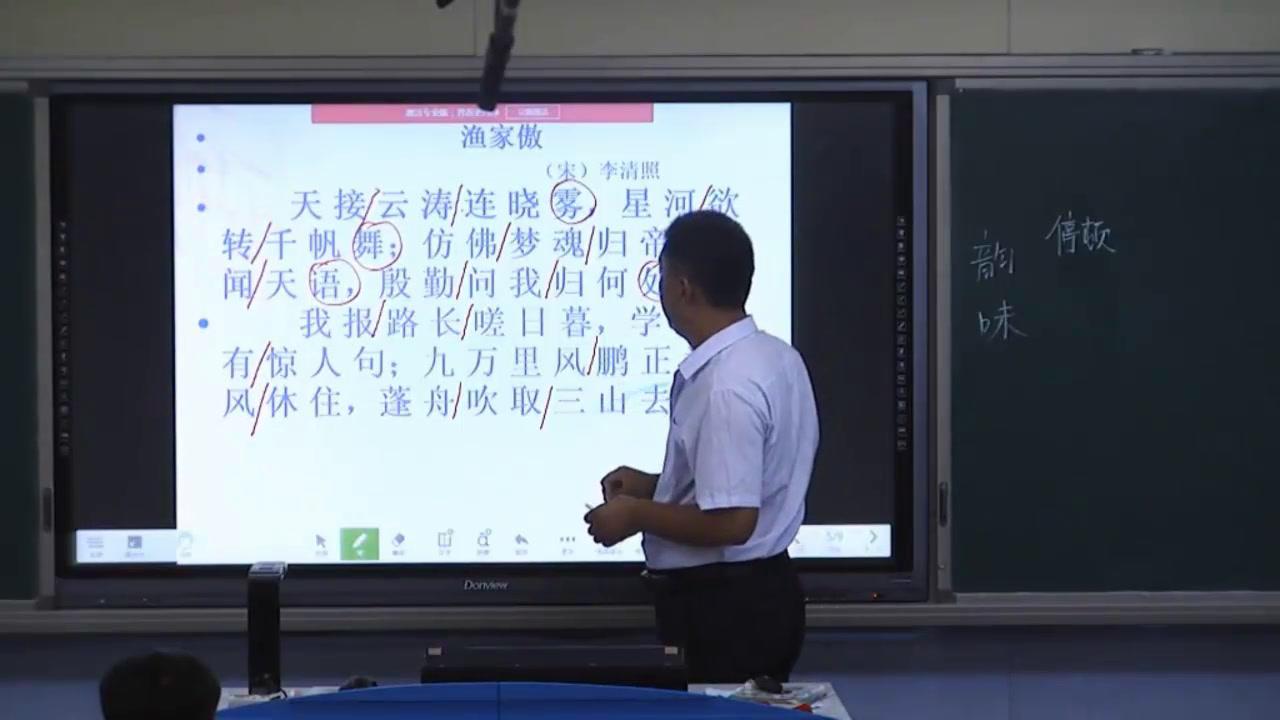 渔家傲
（宋）李清照
天接/云涛/连晓雾，星河/欲
转/千帆舞；仿佛/梦魂/归帝
闻/天语，殷勤/问我/归何处
我报/路长/嗟日暮，学
有/惊人句；九万里风/鹏正
风/休住，蓬舟/吹取/三山去
停顿
韵
味
5/9
Donview